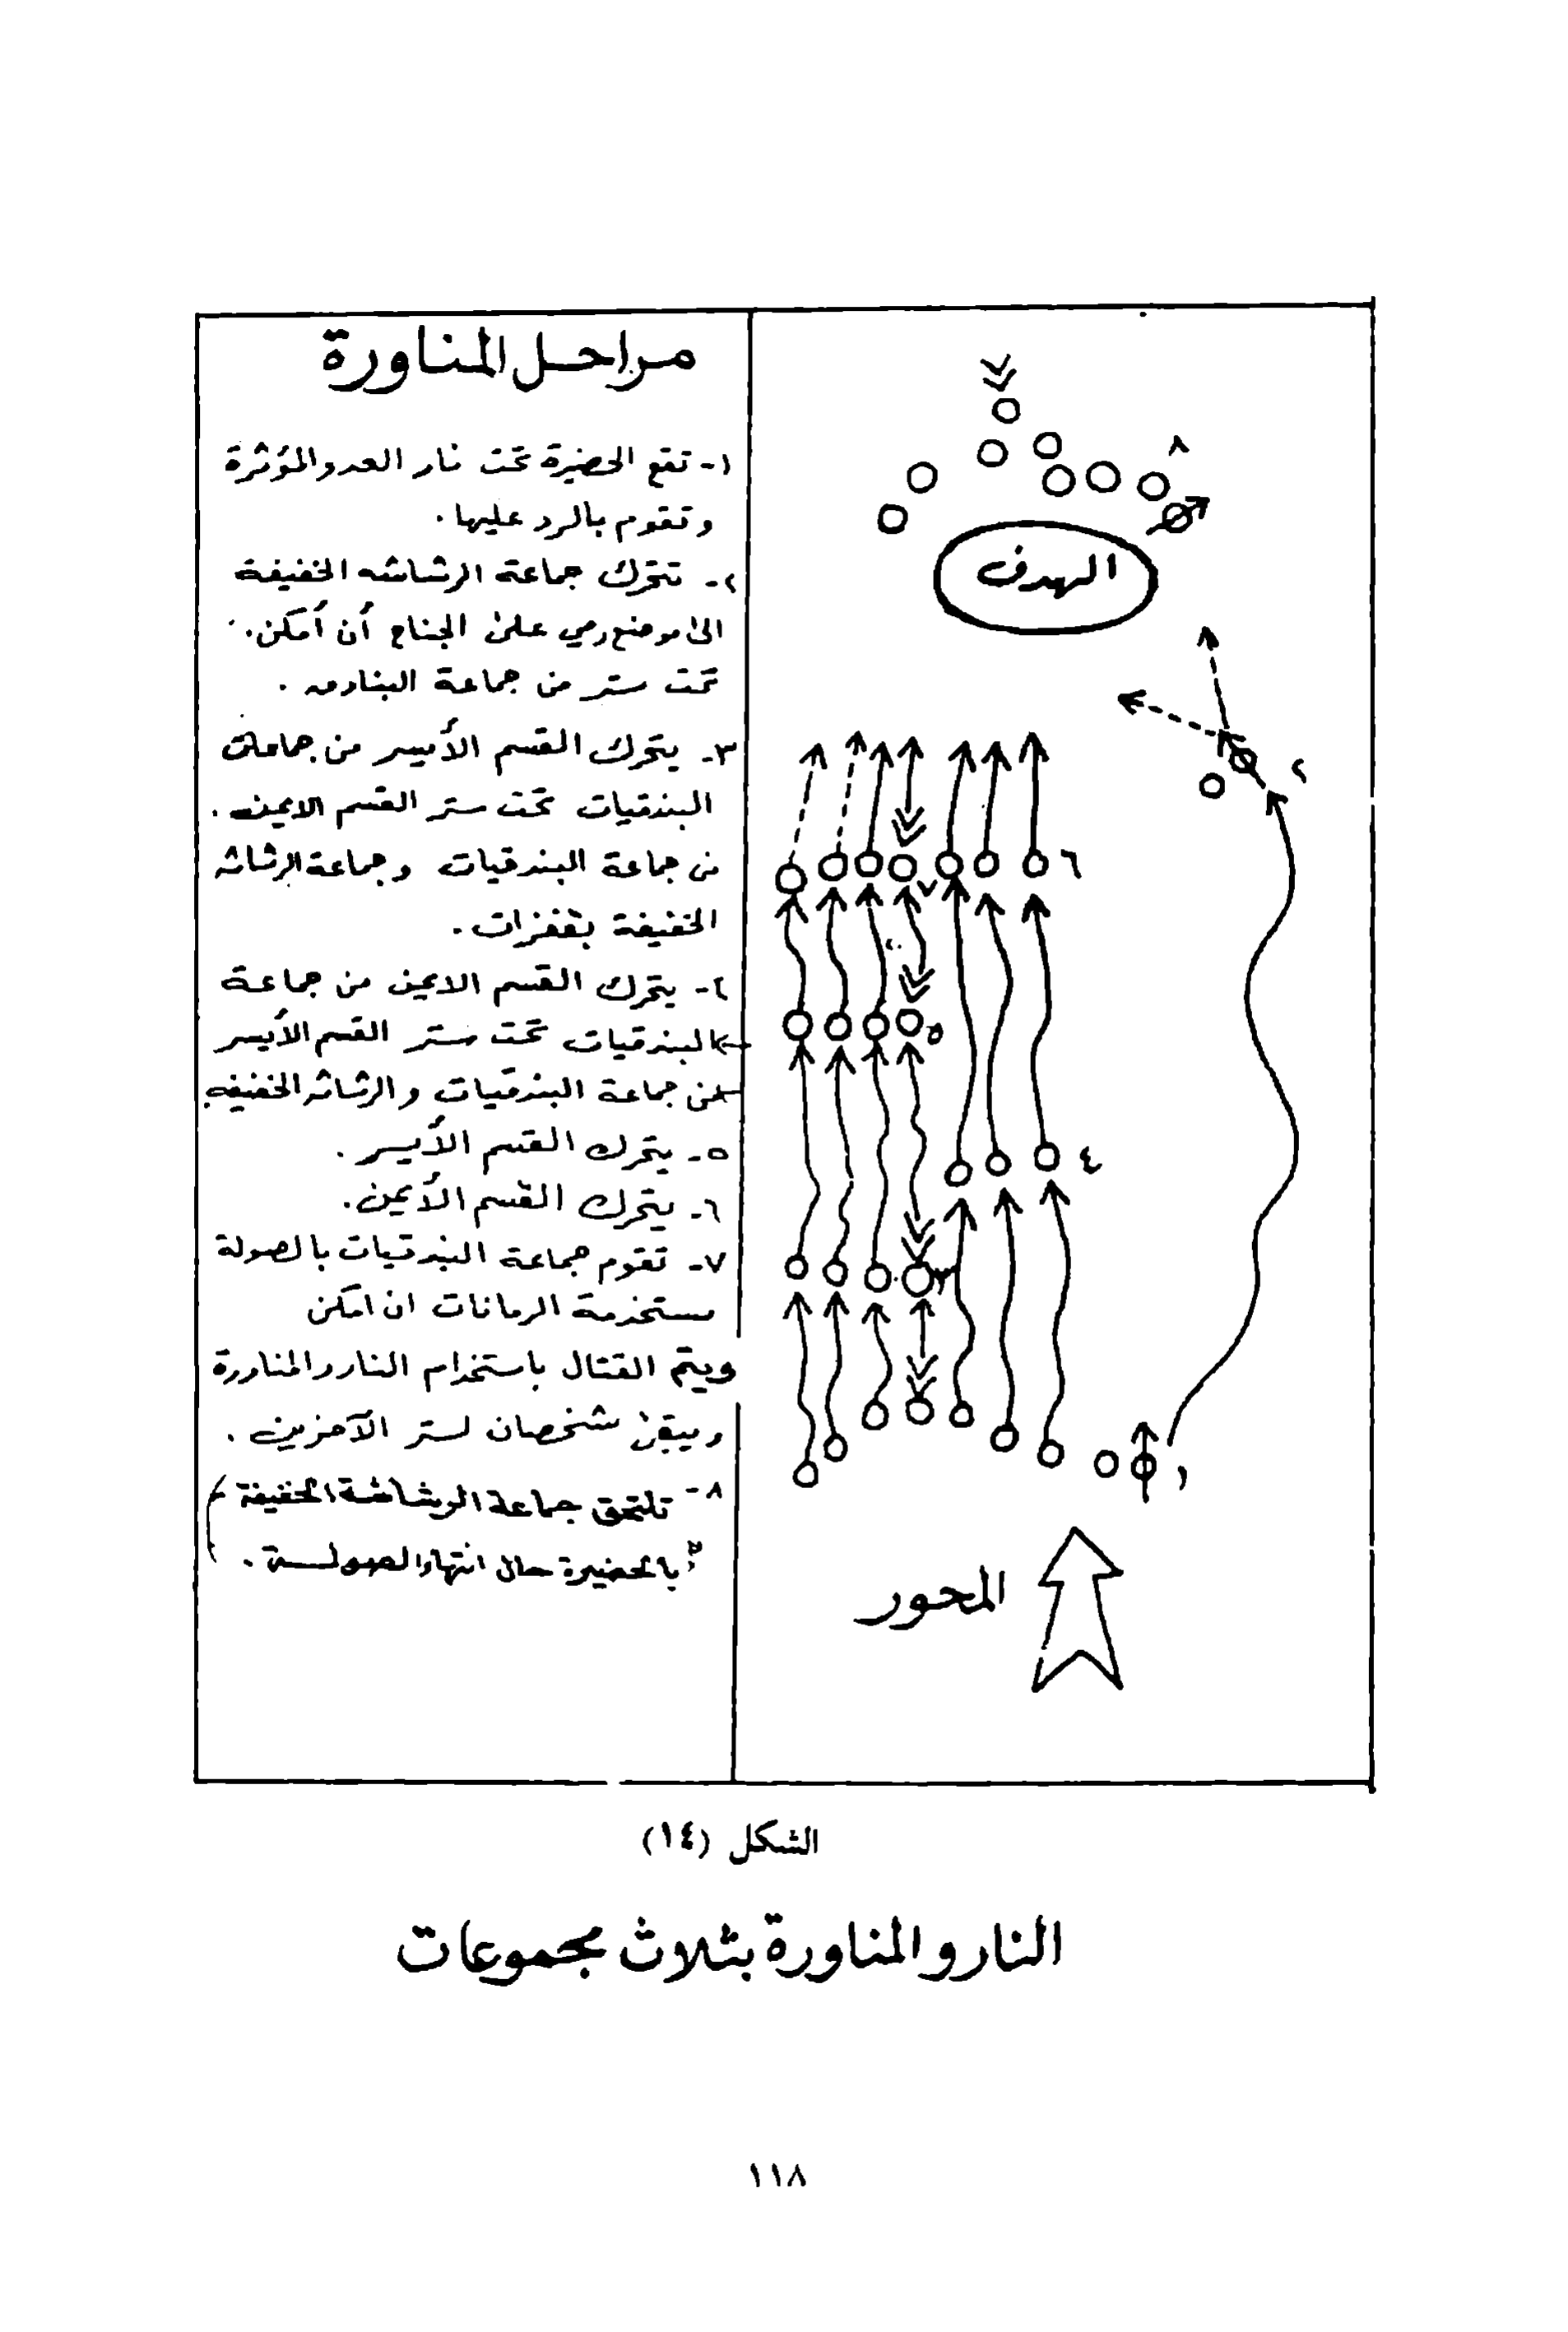 مراحل المناورة
١- تقع الحضيرة تحت نار العدو المؤثرة
وتقوم بالرد عليها.
٢- تتحرك جماعة الرشاشه الخفيفة
الى موضع رمي على الجناح أن أمكن.
تحت ستر من جماعة البنادق.
٣- يتحرك القسم الأيسر من جماعة
البندقيات تحت ستر القسم الايمن.
من جماعة البندقيات وجماعة الرشاشه
الخفيفة بقفزات.
٤- يتحرك القسم الايمن من جماعة
البندقيات تحت ستر القسم الأيسر
من جماعة البندقيات والرشاشه الخفيفه
٥- يتحرك القسم الأيسر.
٦- يتحرك القسم الأيمن.
٧- تقوم جماعة البندقيات بالصولة
مستخدمة الرمانات ان امكن
ويتم القتال باستخدام النار والمناورة
ويبقى شخصان لستر الآخرين.
٨- تلتحق جماعة الرشاشة الخفيفة
بالحضيرة حال انتهاء الصولة.
٨
الهدف
٢
٦
٧
٥
٤
٣
١
المحور
الشكل (١٤)
النار والمناورة بثلاث مجموعات
١١٨